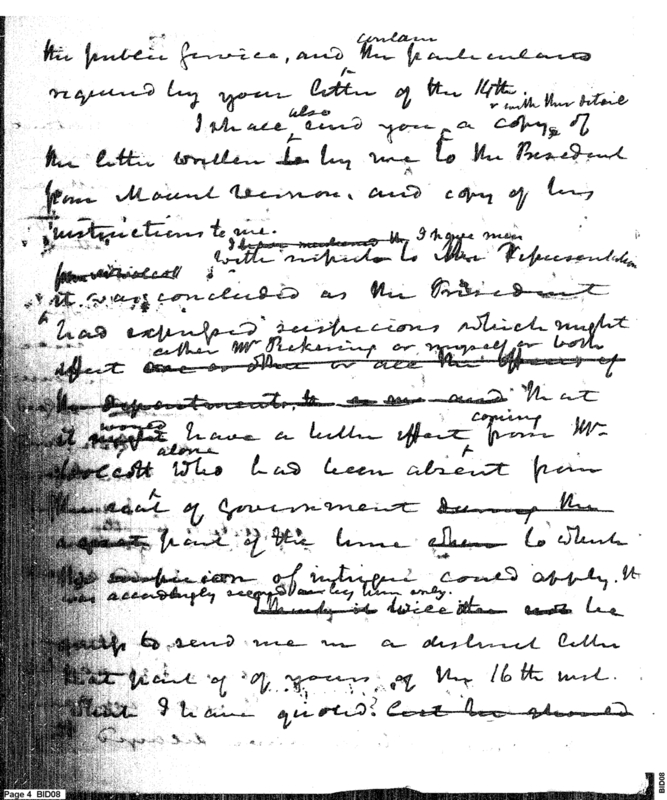 contain
the public service, and the particulars
required by your letter of the 14th.
also & with this detail
I shall send you a copy of
the letter written to by me to the President
from Mount Vernon, and copy of his
instructions to me.
I have mentioned the I have men
With respect to the Representation
it was concluded as the President
had expressed suspicions which might
either Mr Pickering or myself or both
affect one or other or all the officers of
the departments, that
would coming
it might have a better effect from Mr
alone
Wolcott who had been absent from
the seat of government during the
a great part of the time when to which
the suspicion of intrigue could apply. It
was accordingly signed by him only.
Will be
to send me in a distinct letter
that part of of yours of the 16th inst.
which I have quoted? Lest he should
Page 4 BID08
BID08